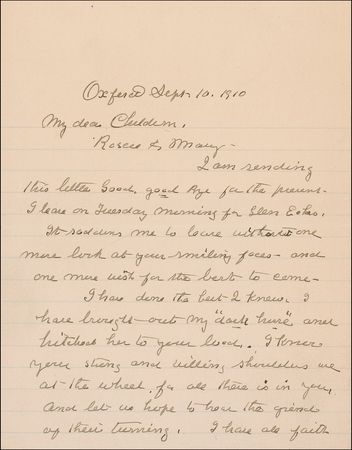 Oxford Sept. 10. 1910
My dear Children,
Roscoe & Mary -
I am sending
this letter Good, good bye for the present -
I leave on Tuesday morning for Glen Echo.
It saddens me to leave without one
more look at your smiling faces - and
one more wish for the best to come -
I have done the best I knew. I
have brought out my "dark horse" and
hitched her to your load. I know
your strong and willing shoulders are
at the wheel, for all there is in you,
and let us hope to hear the grind
of their turning. I have all faith